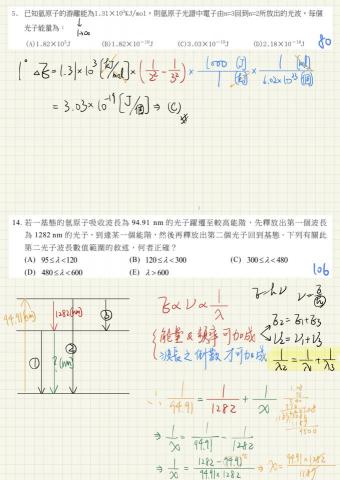 5. 已知氫原子的游離能為1.31×10³kJ/mol,則氫原子光譜中電子由n=3回到n=2所放出的光波,每個
光子能量為:
1→∞
(A)1.82×10⁵J (B)1.82×10⁻¹⁹J (C)3.03×10⁻¹⁹J (D)2.18×10⁻¹⁸J
80
1° ΔE = 1.31×10³ [kJ/mol] × (1/2² - 1/3²) × 1000 [J] / 1 [kJ] × 1 [mol] / 6.02×10²³ [個]
= 3.03×10⁻¹⁹ [J/個] ⇒ (C)
14. 若一基態的氫原子吸收波長為 94.91 nm 的光子躍遷至較高能階,先釋放出第一個波長
為 1282 nm 的光子,到達某一個能階,然後再釋放出第二個光子回到基態。下列有關此
第二光子波長數值範圍的敘述,何者正確?
(A) 95≤λ<120 (B) 120≤λ<300 (C) 300≤λ<480
(D) 480≤λ<600 (E) λ>600
106
94.91(nm)
1282(nm)
③
①
②
?(nm)
E=hν
E∝ν∝1/λ
能量及頻率可加成
波長之倒數才可加成
E₂=E₁+E₃
ν₂=ν₁+ν₃
1/λ₂=1/λ₁+1/λ₃
1/94.91 = 1/1282 + 1/x
⇒ 1/x = 1/94.91 - 1/1282
⇒ 1/x = 1282-94.91 / 94.91×1282 ⇒ x = 94.91×1282 / 1187